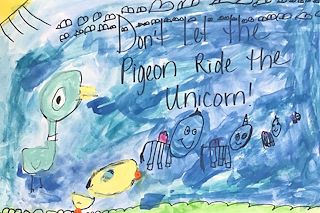 Don't Let the
Pigeon Ride the
Unicorn!